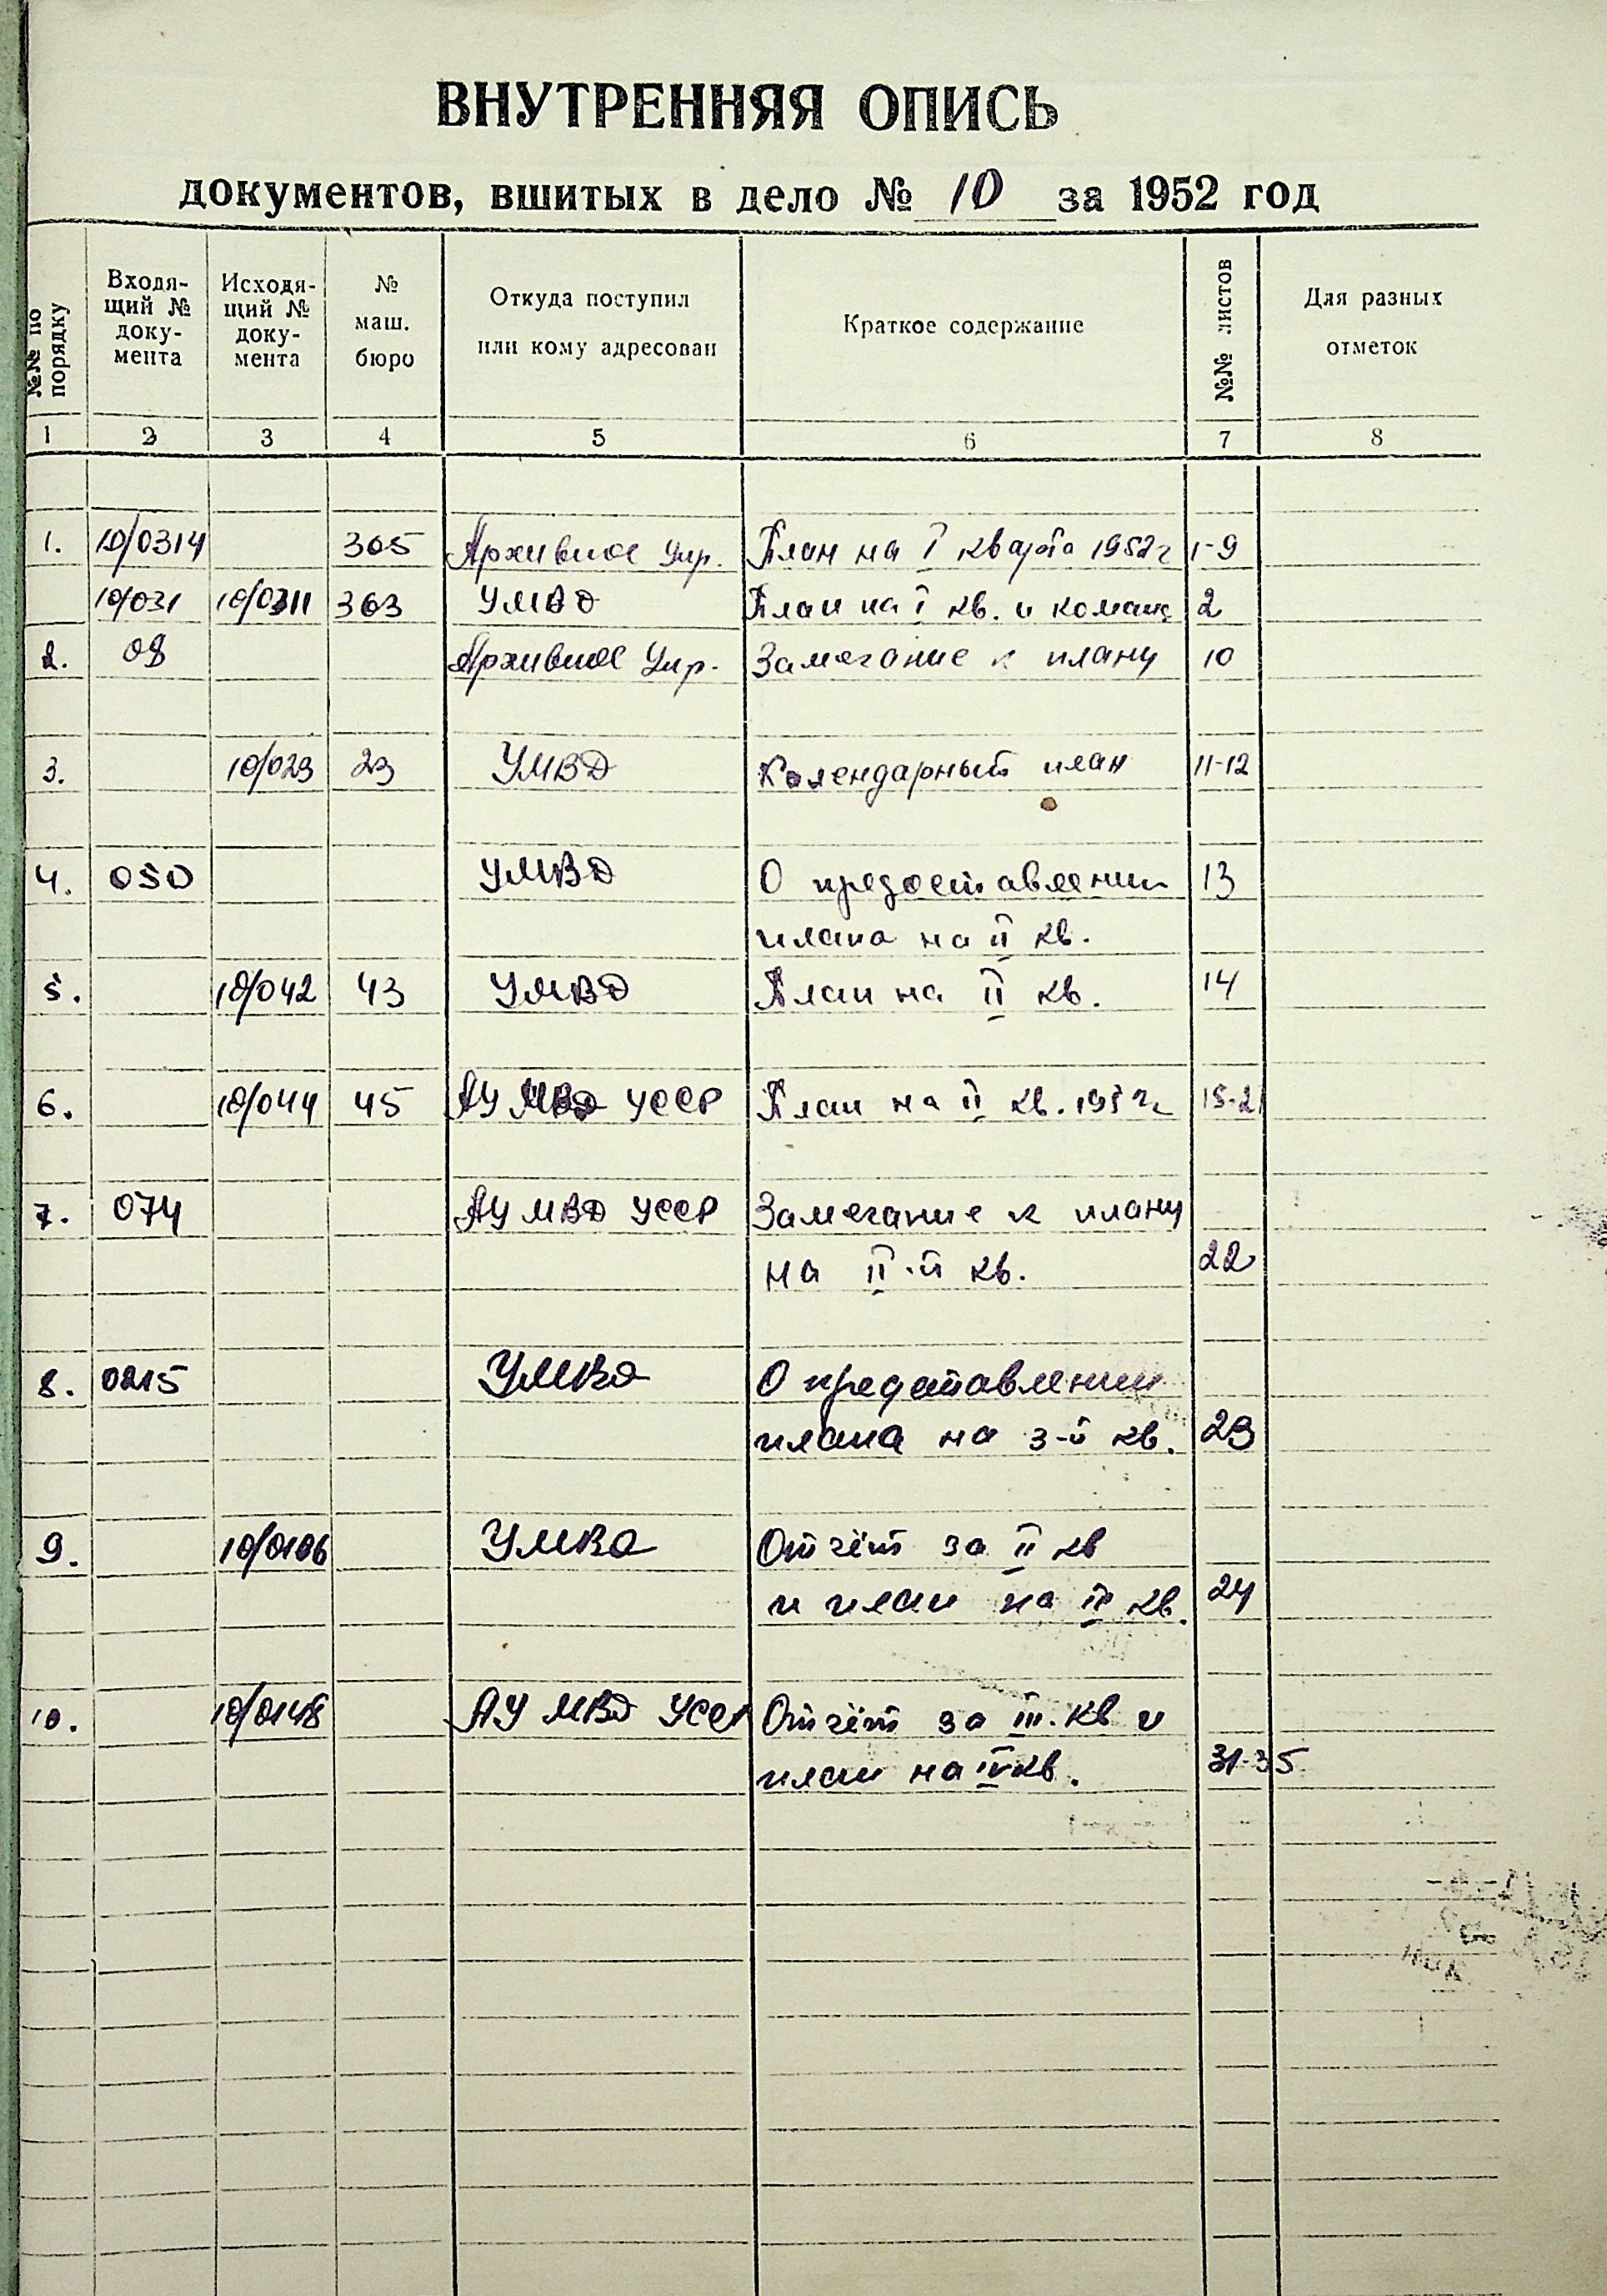 ВНУТРЕННЯЯ ОПИСЬ
документов, вшитых в дело № 10 за 1952 год
№№ по порядку
Входя-
щий №
доку-
мента
Исходя-
щий №
доку-
мента
№
маш.
бюро
Откуда поступил
или кому адресован
Краткое содержание
№№ листов
Для разных
отметок
1 2 3 4 5 6 7 8
1. 10/0314 305 Архивное Упр. План на I квартал 1952г 1-9
10/031 10/0311 303 УМВД План на I кв. и 2
2. 08 Архивное Упр. Замечание к плану 10
3. 10/023 23 УМВД Календарный план 11-12
4. 050 УМВД О предоставлении 13
плана на II кв.
5. 10/042 43 УМВД План на II кв. 14
6. 10/044 45 АУ МВД УССР План на II кв. 15-21
7. 074 АУ МВД УССР Замечание к плану
на II-й кв. 22
8. 0215 УМВД О представлении
плана на 3-й кв. 23
9. 10/0106 УМВД Отчёт за II кв
и план на кв. 24
10. 10/0148 АУ МВД УССР Отчёт за III. кв и
план на IV кв. 31-35